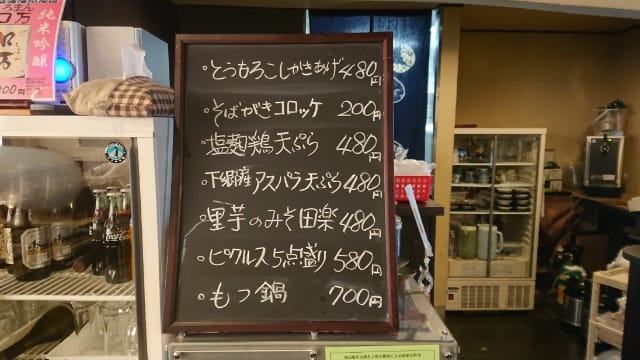 ・とうもろこしかきあげ 480円
・そばがきコロッケ 200円
・塩麹鶏天ぷら 480円
・下郷産アスパラ天ぷら 480円
・里芋のみそ田楽 480円
・ピクルス5点盛り 580円
・もつ鍋 700円
純米吟醸
ろまん